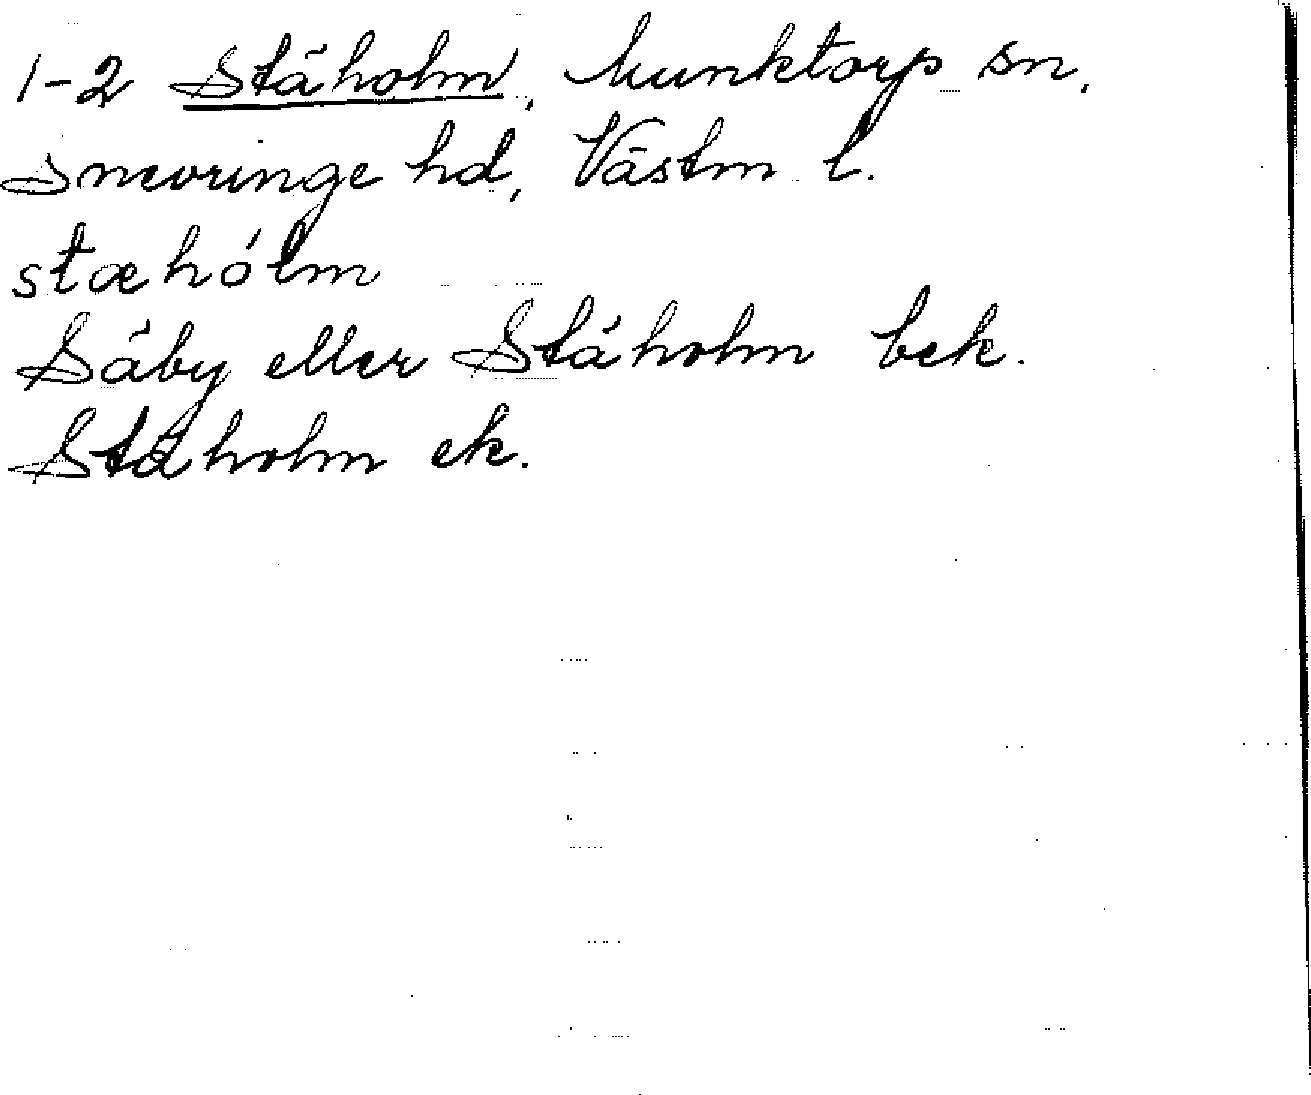 1-2 Stäholm, Munktorp sn,
Snevringe hd, Västm l.
stæhólm
Säby eller Stäholm bek.
Stäholm ek.